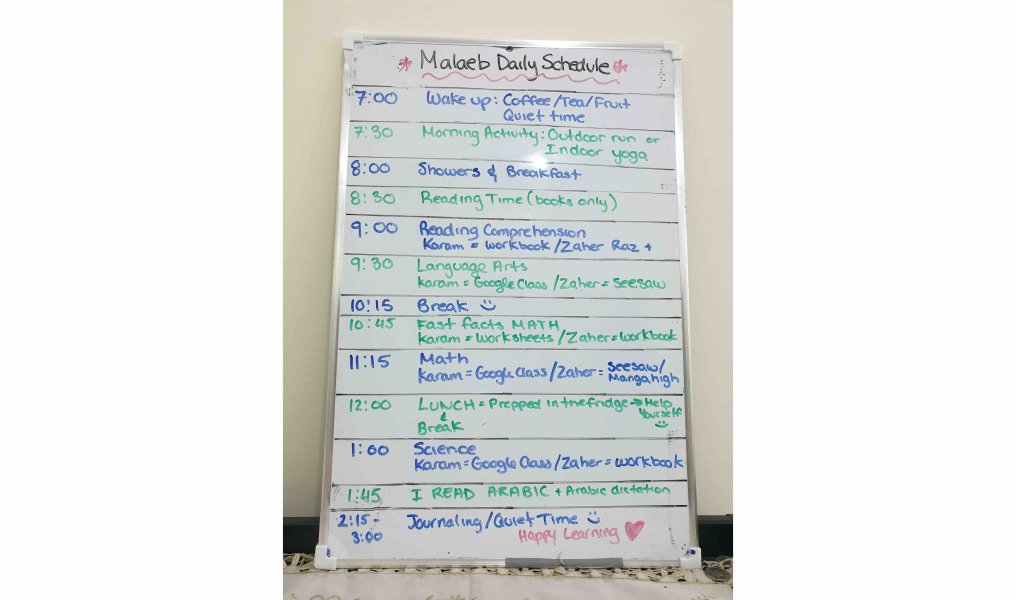 * Malaeb Daily Schedule *
7:00 Wake up: Coffee/Tea/Fruit
Quiet time
7:30 Morning Activity: Outdoor run or
Indoor yoga
8:00 Showers & Breakfast
8:30 Reading Time (books only)
9:00 Reading Comprehension
Karam = workbook /Zaher Raz +
9:30 Language Arts
Karam = Google Class /Zaher = Seesaw
10:15 Break
10:45 Fast facts MATH
Karam = Worksheets /Zaher = workbook
11:15 Math
Karam = Google Class/Zaher = Seesaw/
Mangahigh
12:00 LUNCH = Prepped in the fridge → Help
Yourself
&
Break
1:00 Science
Karam = Google Class /Zaher = workbook
1:45 I READ ARABIC + Arabic dictation
2:15 - Journaling/Quiet Time
3:00 Happy Learning